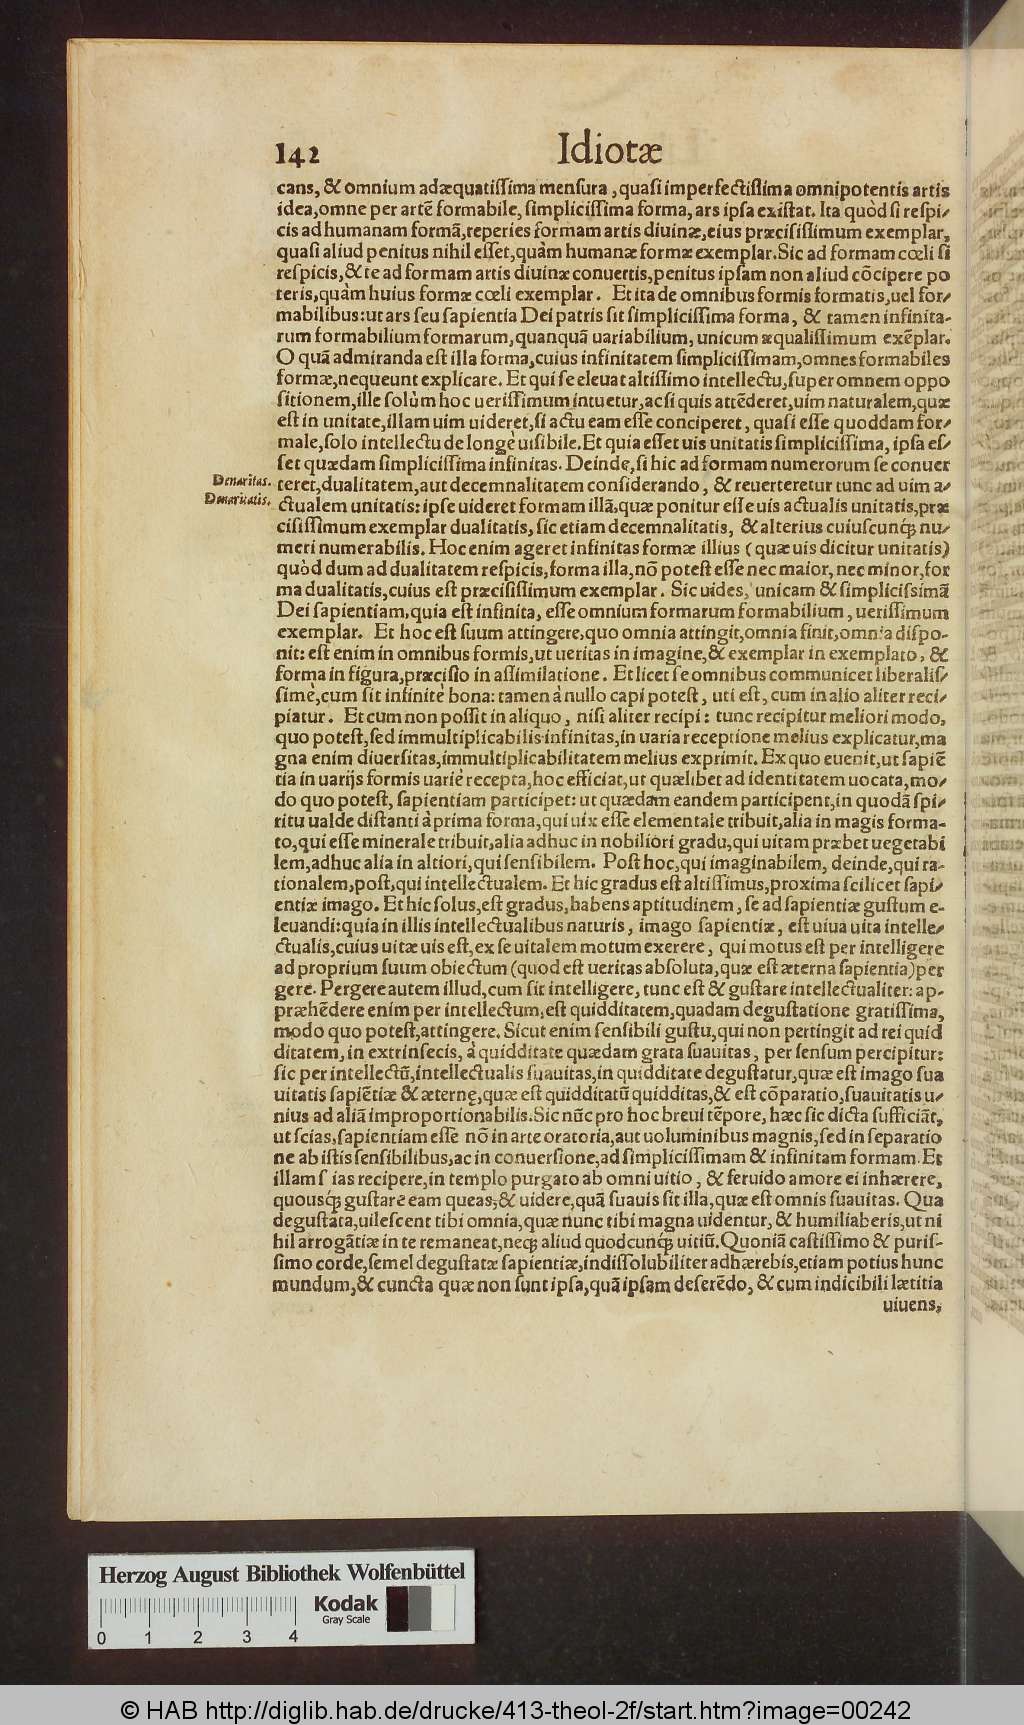 142
Idiotæ
cans, & omnium adæquatiſſima menſura, quaſi imperfectiſſima omnipotentis artis
idea, omne per artē formabile, ſimpliciſſima forma, ars ipſa exiſtat. Ita quòd ſi reſpi/
cis ad humanam formã, reperies formam artis diuinæ, eius præciſiſſimum exemplar,
quaſi aliud penitus nihil eſſet, quàm humanæ formæ exemplar. Sic ad formam cœli ſi
reſpicis, & te ad formam artis diuinæ conuertis, penitus ipſam non aliud cōcipere po
teris, quàm huius formæ cœli exemplar. Et ita de omnibus formis formatis, uel for/
mabilibus: ut ars ſeu ſapientia Dei patris ſit ſimpliciſſima forma, & tamen infinita-
rum formabilium formarum, quanquã uariabilium, unicum æqualiſſimum exēplar.
O quã admiranda eſt illa forma, cuius infinitatem ſimpliciſſimam, omnes formabiles
formæ, nequeunt explicare. Et qui ſe eleuat altiſſimo intellectu, ſuper omnem oppo
ſitionem, ille ſolùm hoc ueriſſimum intuetur, ac ſi quis attēderet, uim naturalem, quæ
eſt in unitate, illam uim uideret, ſi actu eam eſſe conciperet, quaſi eſſe quoddam for/
male, ſolo intellectu de longè uiſibile. Et quia eſſet uis unitatis ſimpliciſſima, ipſa eſ/
ſet quædam ſimpliciſſima infinitas. Deinde, ſi hic ad formam numerorum ſe conuer
Denaritas.
teret, dualitatem, aut decemnalitatem conſiderando, & reuerteretur tunc ad uim a/
Denarïtatis.
ctualem unitatis: ipſe uideret formam illã, quæ ponitur eſſe uis actualis unitatis, præ
ciſiſſimum exemplar dualitatis, ſic etiam decemnalitatis, & alterius cuiuſcunq; nu/
meri numerabilis. Hoc enim ageret infinitas formæ illius (quæ uis dicitur unitatis)
quòd dum ad dualitatem reſpicis, forma illa, nō poteſt eſſe nec maior, nec minor, for
ma dualitatis, cuius eſt præciſiſſimum exemplar. Sic uides, unicam & ſimpliciſsimã
Dei ſapientiam, quia eſt infinita, eſſe omnium formarum formabilium, ueriſſimum
exemplar. Et hoc eſt ſuum attingere, quo omnia attingit, omnia finit, omnia diſpo-
nit: eſt enim in omnibus formis, ut ueritas in imagine, & exemplar in exemplato, &
forma in figura, præciſio in aſſimilatione. Et licet ſe omnibus communicet liberaliſ/
ſimè, cum ſit infinitè bona: tamen à nullo capi poteſt, uti eſt, cum in alio aliter reci/
piatur. Et cum non poſſit in aliquo, niſi aliter recipi: tunc recipitur meliori modo,
quo poteſt, ſed immultiplicabilis infinitas, in uaria receptione melius explicatur, ma
gna enim diuerſitas, immultiplicabilitatem melius exprimit. Ex quo euenit, ut ſapiē
tia in uarijs formis uariè recepta, hoc efficiat, ut quælibet ad identitatem uocata, mo/
do quo poteſt, ſapientiam participet: ut quædam eandem participent, in quodã ſpi/
ritu ualde diſtanti à prima forma, qui uix eſſe elementale tribuit, alia in magis forma-
to, qui eſſe minerale tribuit, alia adhuc in nobiliori gradu, qui uitam præbet uegetabi
lem, adhuc alia in altiori, qui ſenſibilem. Poſt hoc, qui imaginabilem, deinde, qui ra-
tionalem, poſt, qui intellectualem. Et hic gradus eſt altiſſimus, proxima ſcilicet ſapi/
entiæ imago. Et hic ſolus, eſt gradus, habens aptitudinem, ſe ad ſapientiæ guſtum e-
leuandi: quia in illis intellectualibus naturis, imago ſapientiæ, eſt uiua uita intelle/
ctualis, cuius uitæ uis eſt, ex ſe uitalem motum exerere, qui motus eſt per intelligere
ad proprium ſuum obiectum (quod eſt ueritas abſoluta, quæ eſt æterna ſapientia) per
gere. Pergere autem illud, cum ſit intelligere, tunc eſt & guſtare intellectualiter: ap-
præhēdere enim per intellectum, eſt quidditatem, quadam deguſtatione gratiſſima,
modo quo poteſt, attingere. Sicut enim ſenſibili guſtu, qui non pertingit ad rei quid
ditatem, in extrinſecis, à quidditate quædam grata ſuauitas, per ſenſum percipitur:
ſic per intellectũ, intellectualis ſuauitas, in quidditate deguſtatur, quæ eſt imago ſua
uitatis ſapiētiæ & æternę, quæ eſt quidditatũ quidditas, & eſt cōparatio, ſuauitatis u/
nius ad aliã improportionabilis. Sic nũc pro hoc breui tēpore, hæc ſic dicta ſufficiãt,
ut ſcias, ſapientiam eſſe nō in arte oratoria, aut uoluminibus magnis, ſed in ſeparatio
ne ab iſtis ſenſibilibus, ac in conuerſione, ad ſimpliciſſimam & infinitam formam. Et
illam ſ ias recipere, in templo purgato ab omni uitio, & feruido amore ei inhærere,
quouſq; guſtare eam queas, & uidere, quã ſuauis ſit illa, quæ eſt omnis ſuauitas. Qua
deguſtata, uileſcent tibi omnia, quæ nunc tibi magna uidentur, & humiliaberis, ut ni
hil arrogãtiæ in te remaneat, neq; aliud quodcunq; uitiũ. Quoniã caſtiſſimo & puriſ-
ſimo corde, ſemel deguſtatæ ſapientiæ, indiſſolubiliter adhærebis, etiam potius hunc
mundum, & cuncta quæ non ſunt ipſa, quã ipſam deſerēdo, & cum indicibili lætitia
uiuens,
Herzog August Bibliothek Wolfenbüttel
Kodak
Gray Scale
0 1 2 3 4
© HAB http://diglib.hab.de/drucke/413-theol-2f/start.htm?image=00242